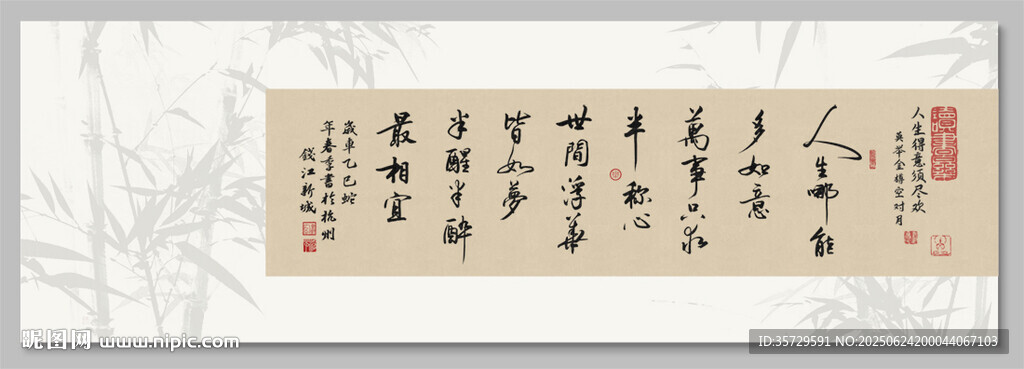 人生得意须尽欢
金樽空对月
人生哪能
多如意
萬事只求
半称心
世間浮華
皆如夢
半醒半醉
最相宜
歲乙巳蛇
年春季書於杭州
錢江新城
昵图网 www.nipic.com
ID:35729591 NO:20250624200044067103